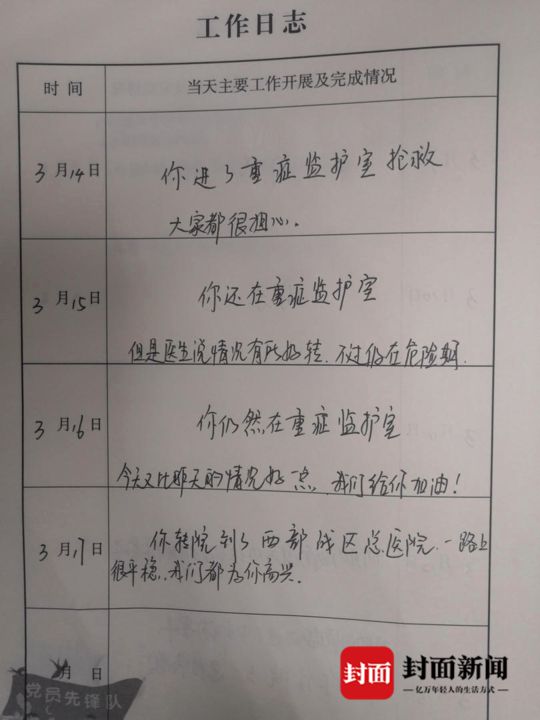 工作日志
时 间 当天主要工作开展及完成情况
3月14日 你进了重症监护室抢救
大家都很担心。
3月15日 你还在重症监护室
但是医生说情况有所好转.不过仍在危险期.
3月16日 你仍然在重症监护室
今天又比昨天的情况好一点,我们给你加油!
3月17日 你转院到了西部战区总医院.一路上
很平稳.我们都为你高兴.
月 日
党员先锋队
封面 封面新闻
亿万年轻人的生活方式